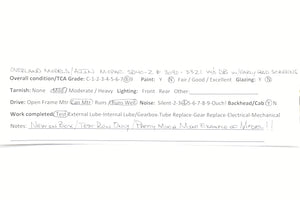 OVERLAND MODELS/AJIN MOPAC SD40-2 # 3321 W/EARLY RAD SCREENS
Overall condition/TCA Grade: C-1-2-3-4-5-6-7-8-9-10 Paint: Y N Fair / Good / Excellent Glazing: Y N
Tarnish: None / Mild / Moderate / Heavy Lighting: Front Rear Other
Drive: Open Frame Mtr/Can Mtr Runs (Runs Well) Noise: Silent-2-3-4-5-6-7-8-9-Ouch/ Backhead/Cab Y N
Work completed: Test External Lube-Internal Lube/Gearbox-Tube Replace-Gear Replace-Electrical-Mechanical
Notes: NEW IN BOX / TEST RUN ONLY / PRETTY MUCH MINT EXAMPLE OF MODEL!!